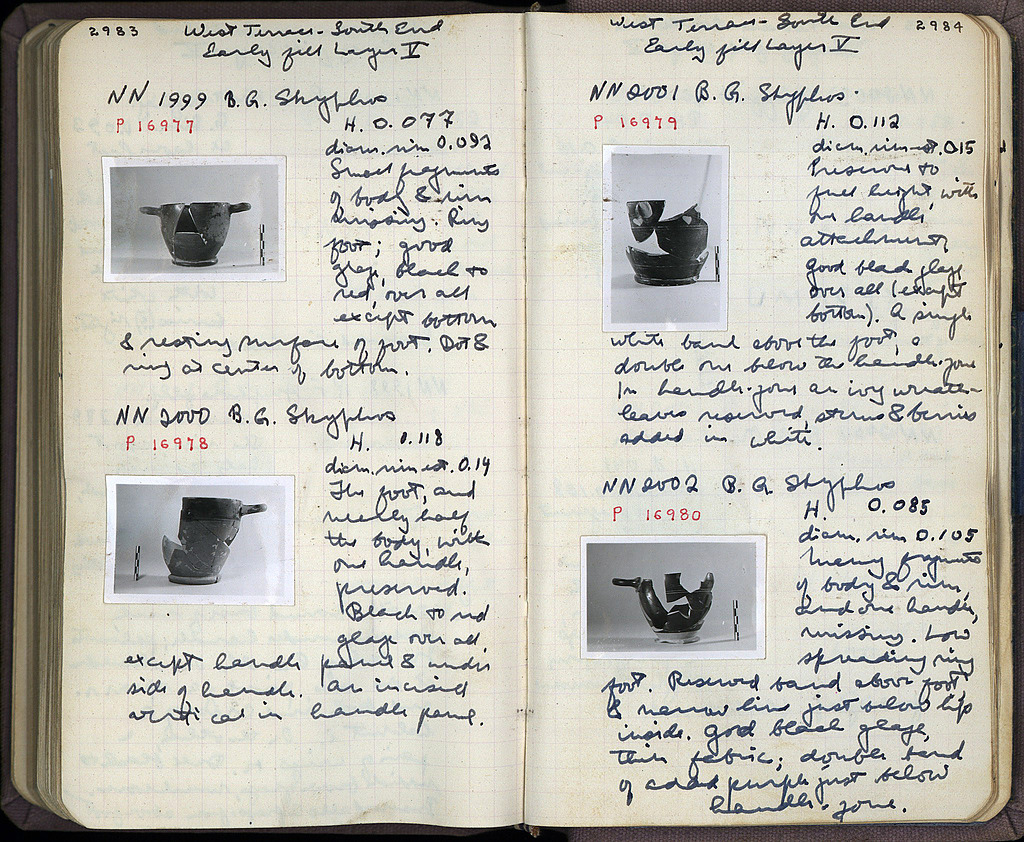 2983
West Terrace - South End
Early fill Layer V
NN 1999 B.G. Skyphos
P 16977
H. 0.077
diam. rim 0.092
Small fragments
of body & rim
missing. Ring
foot; good
glaze, black to
red, over all
except bottom
& resting surface of foot. Dot &
ring at center of bottom.
NN 2000 B.G. Skyphos
P 16978
H. 0.118
diam. rim est. 0.14
The foot, and
nearly half
the body, with
one handle,
preserved.
Black to red
glaze over all,
except handle panel & under
side of handle. An incised
vertical in handle panel.
2984
West Terrace - South End
Early fill Layer V
NN 2001 B.G. Skyphos.
P 16979
H. 0.112
diam. rim est. 0.15
Preserved to
full height, with
one handle
attachment,
good black glaze
over all (except
bottom). A single
white band above the foot, a
double one below the handle-zone
In handle-zone an ivy wreath -
leaves reserved, stems & berries
added in white.
NN 2002 B.G. Skyphos
P 16980
H. 0.085
diam. rim 0.105
Many fragments
of body & rim,
and one handle,
missing. Low
spreading ring
foot. Reserved band above foot
& narrow line just below lip
inside. Good black glaze,
thin fabric; double band
of added purple just below
handle-zone.